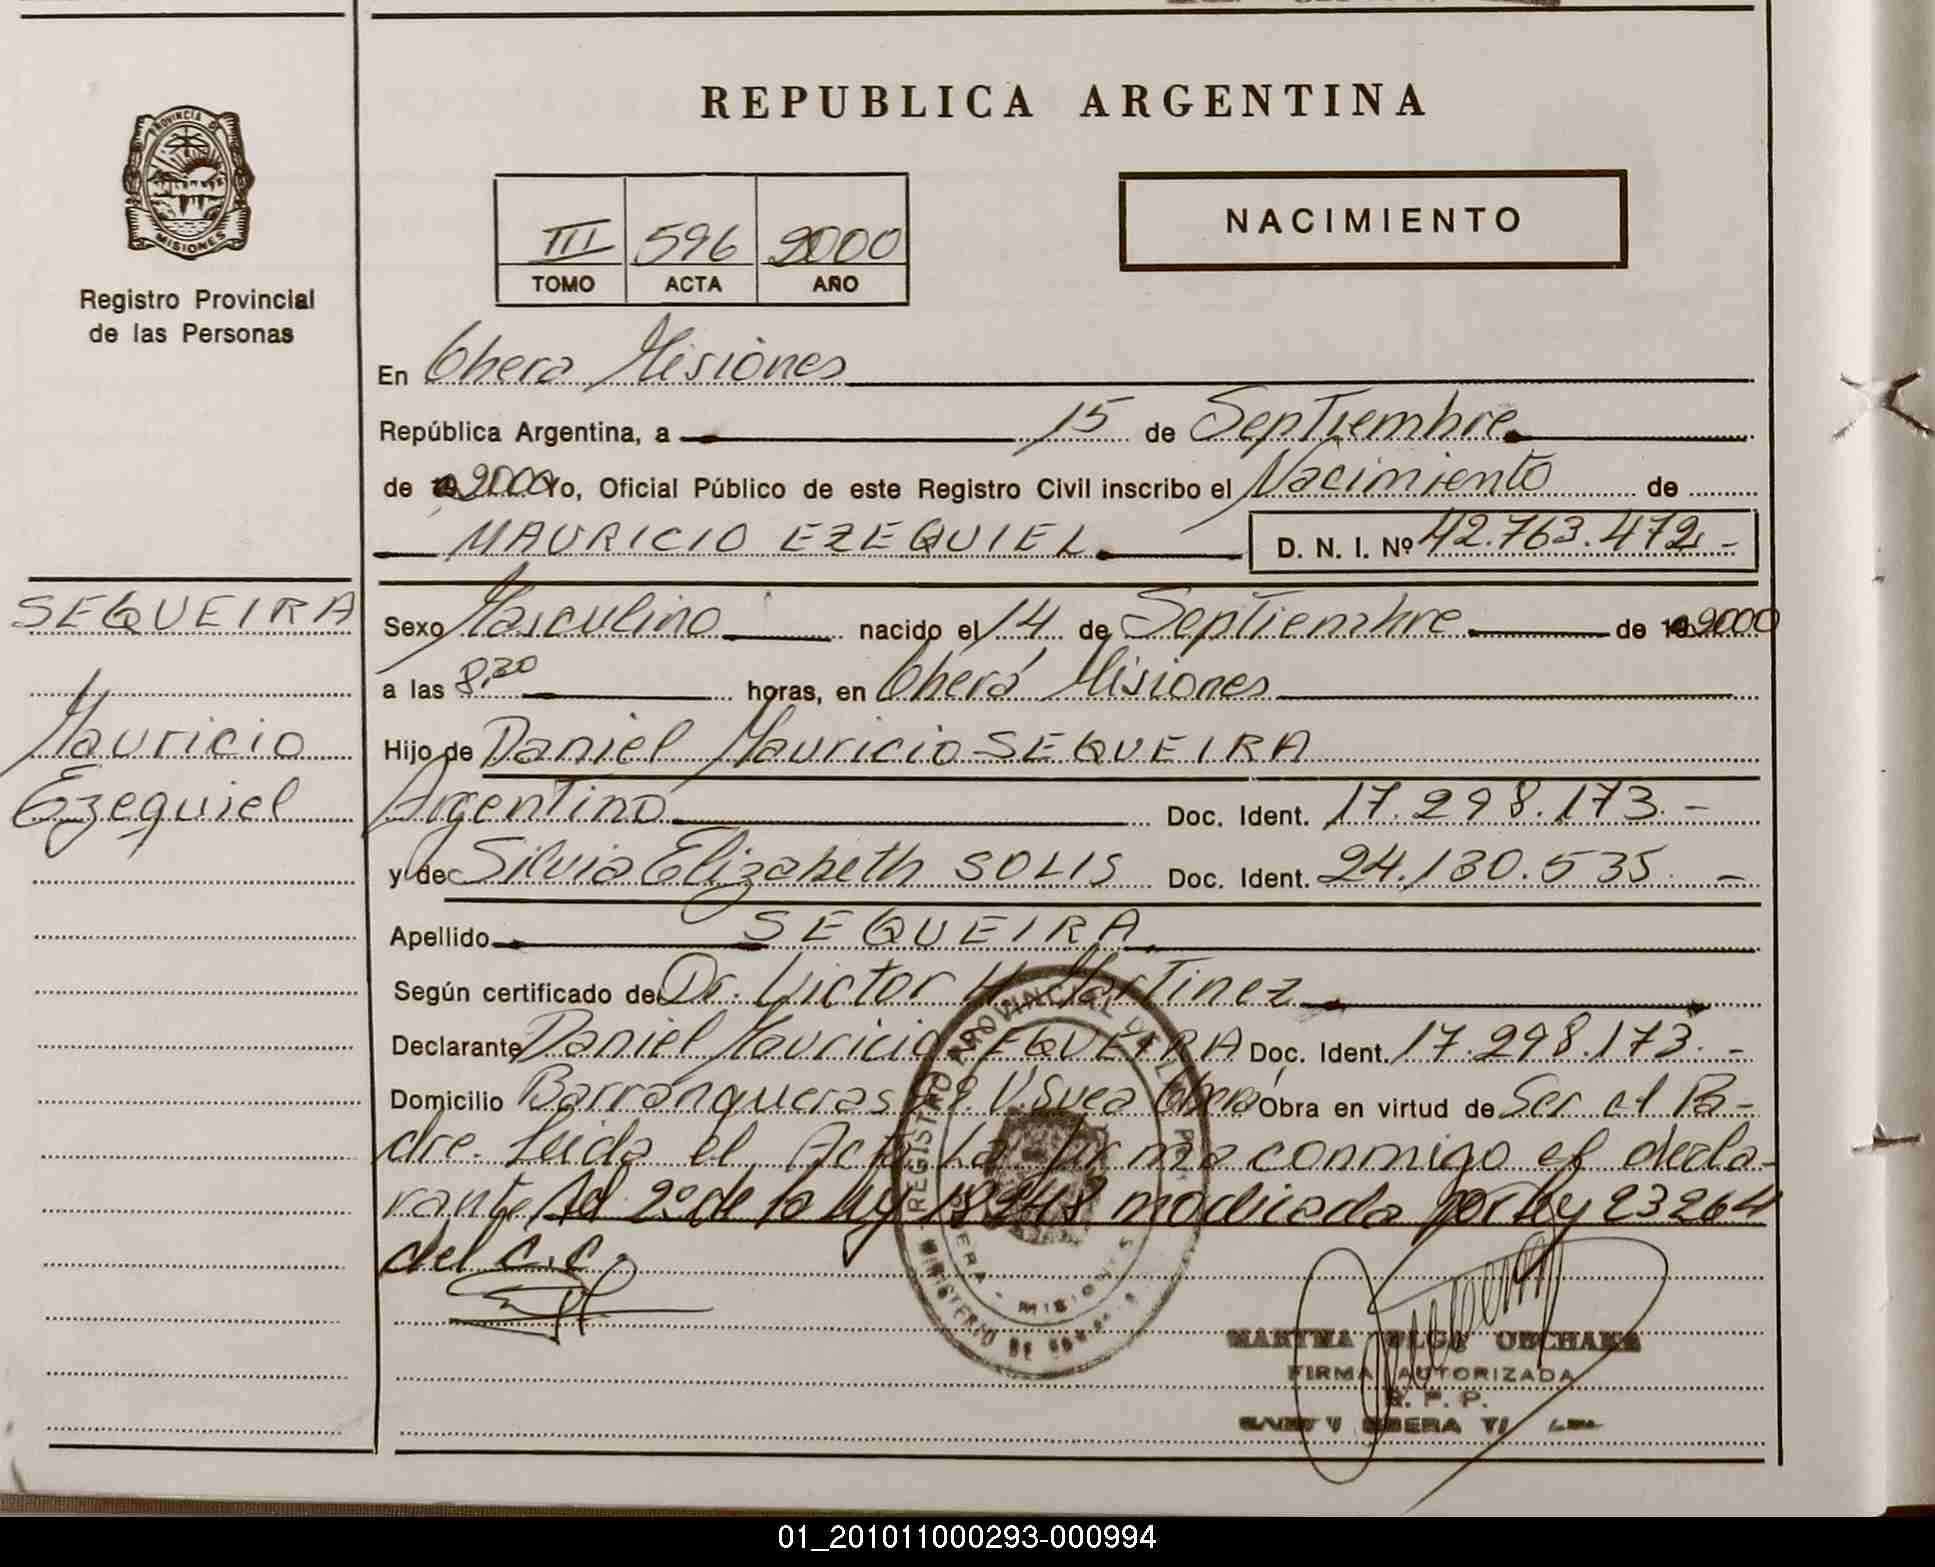 REPUBLICA ARGENTINA
PROVINCIA DE
MISIONES
Registro Provincial
de las Personas
III 596 2000
TOMO ACTA AÑO
NACIMIENTO
En Obera Misiones
República Argentina, a 15 de Septiembre
de 2000 Yo, Oficial Público de este Registro Civil inscribo el Nacimiento de
MAURICIO EZEQUIEL D. N. I. Nº 42.763.472.-
SEQUEIRA
Mauricio
Ezequiel
Sexo Masculino nacido el 14 de Septiembre de 19 2000
a las 8,30 horas, en Oberá Misiones
Hijo de Daniel Mauricio SEQUEIRA
Argentino Doc. Ident. 17.298.173.-
y de Silvia Elizabeth SOLIS Doc. Ident. 24.130.535.-
Apellido SEQUEIRA
Según certificado de Dr. Victor H Martinez
Declarante Daniel Mauricio SEQUEIRA Doc. Ident. 17.298.173.-
Domicilio Barranqueras Oberá Obra en virtud de Ser el Pa-
dre. Leida el Acta La firma conmigo el decla-
rante 2º de la ley 18248 modicada por ley 23264
del C.C.
REGISTRO PROVINCIAL DE LAS
OBERA - MISIONES
MINISTERIO DE
MARTHA OLGA
FIRMA AUTORIZADA
R. P. P.
OBERA
01_201011000293-000994